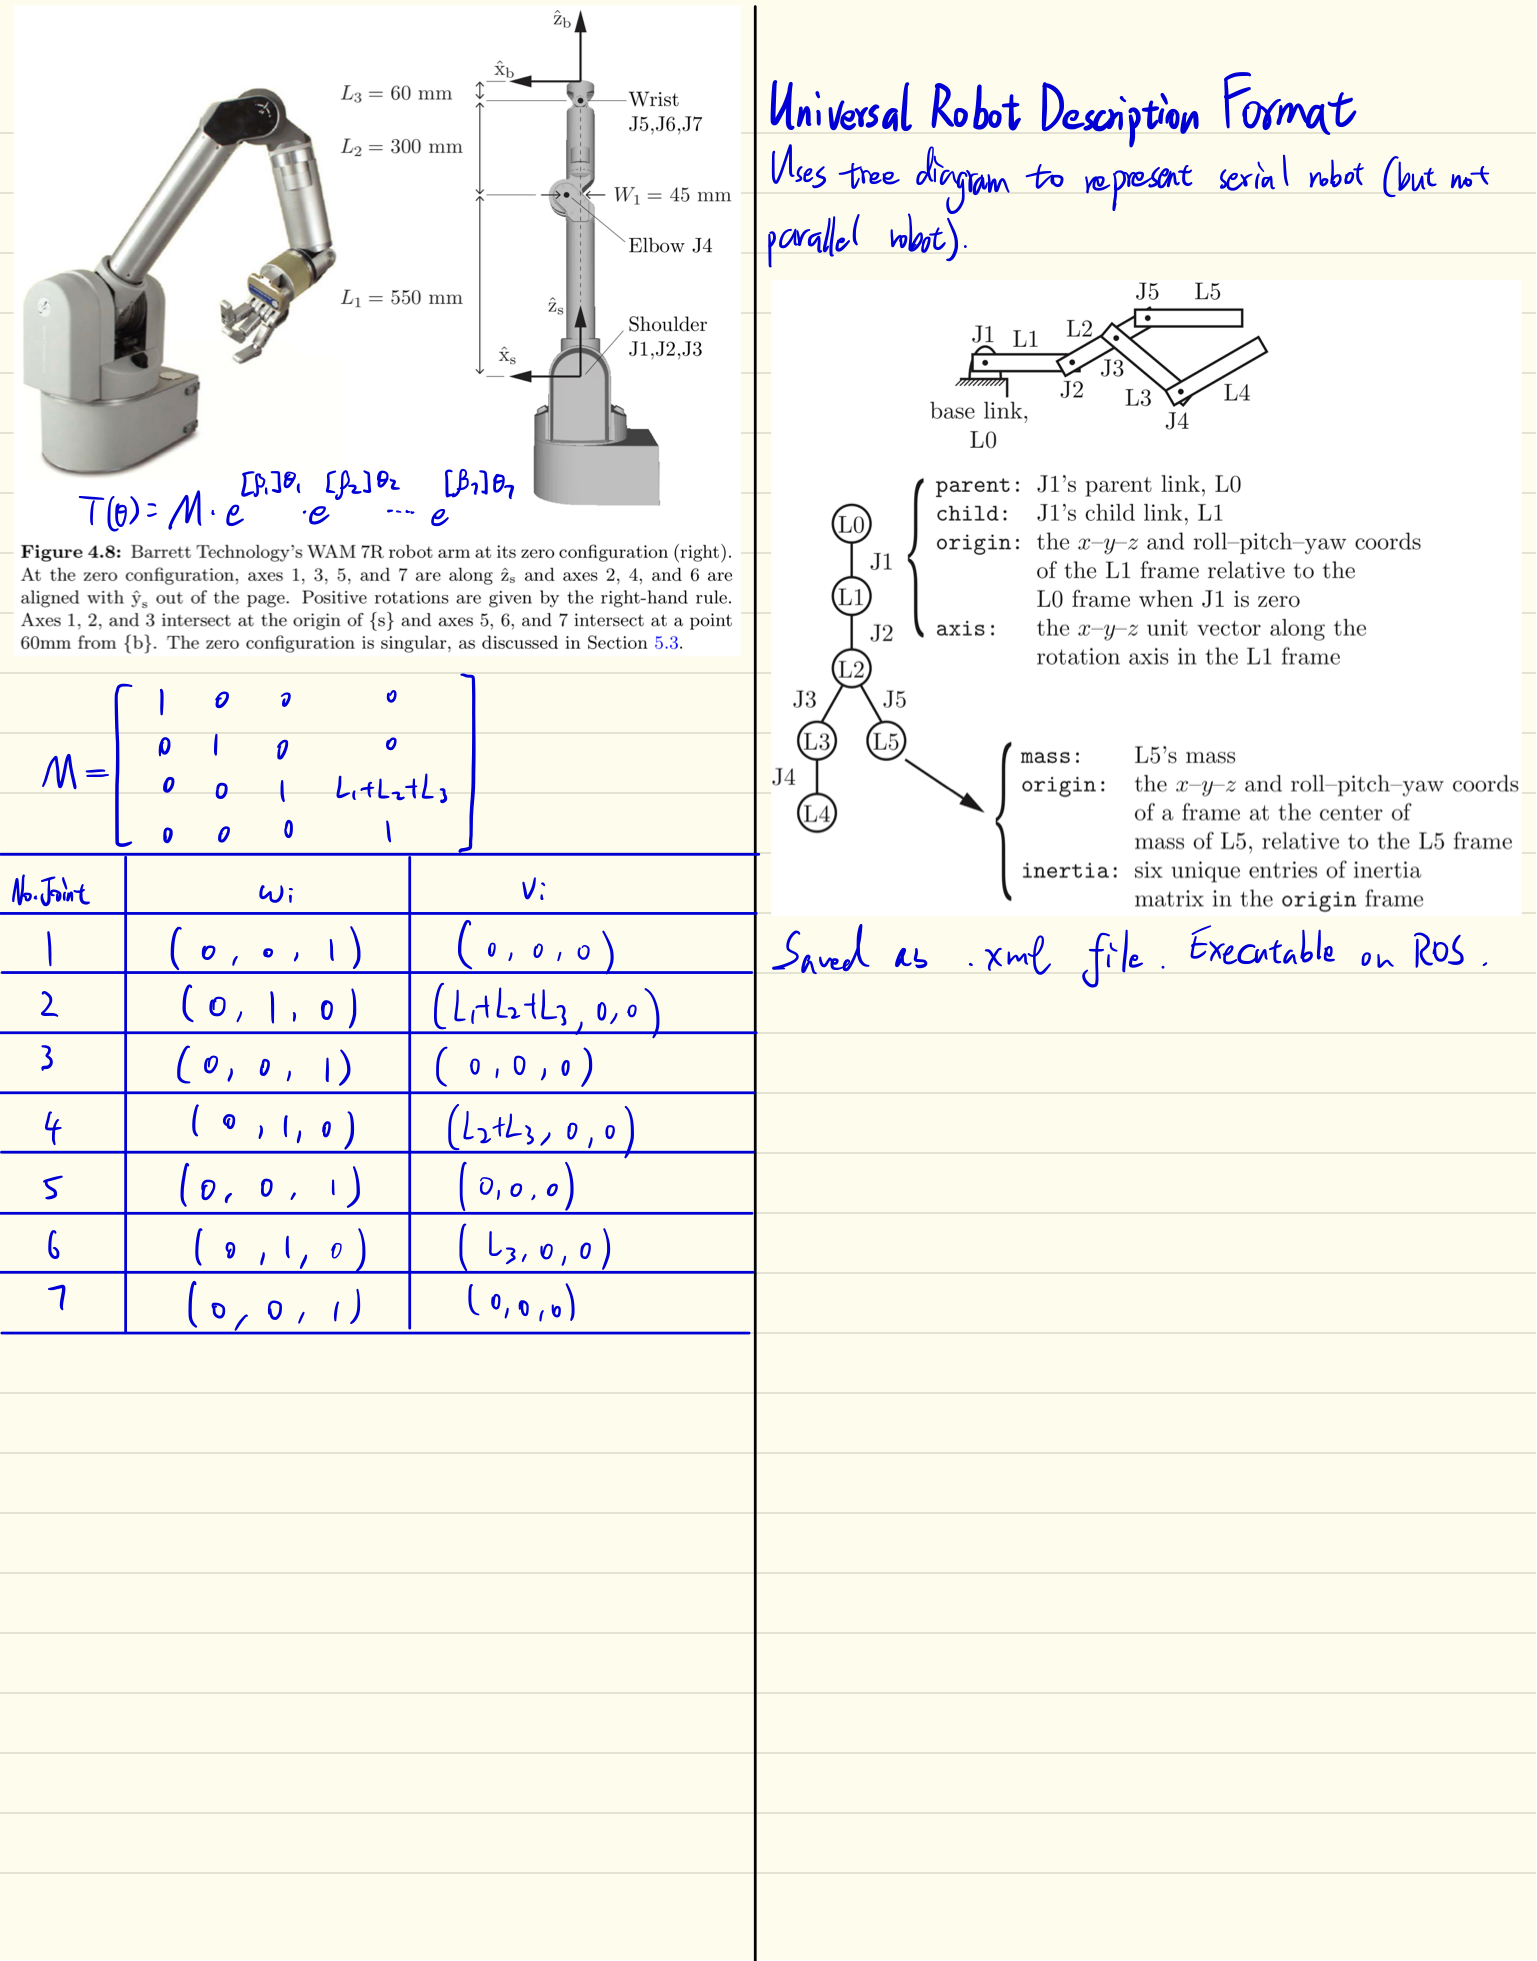 ẑb
x̂b
L3 = 60 mm
Wrist
J5,J6,J7
L2 = 300 mm
W1 = 45 mm
Elbow J4
L1 = 550 mm
ẑs
Shoulder
J1,J2,J3
x̂s
T(θ) = M · e^[β1]θ1 · e^[β2]θ2 ···· e^[β7]θ7
Figure 4.8: Barrett Technology's WAM 7R robot arm at its zero configuration (right).
At the zero configuration, axes 1, 3, 5, and 7 are along ẑs and axes 2, 4, and 6 are
aligned with ŷs out of the page. Positive rotations are given by the right-hand rule.
Axes 1, 2, and 3 intersect at the origin of {s} and axes 5, 6, and 7 intersect at a point
60mm from {b}. The zero configuration is singular, as discussed in Section 5.3.
1 0 0 0
0 1 0 0
M =
0 0 1 L1+L2+L3
0 0 0 1
No.Joint ωi vi
1 (0, 0, 1) (0, 0, 0)
2 (0, 1, 0) (L1+L2+L3, 0, 0)
3 (0, 0, 1) (0, 0, 0)
4 (0, 1, 0) (L2+L3, 0, 0)
5 (0, 0, 1) (0, 0, 0)
6 (0, 1, 0) (L3, 0, 0)
7 (0, 0, 1) (0, 0, 0)
Universal Robot Description Format
Uses tree diagram to represent serial robot (but not
parallel robot).
J5 L5
J1 L1 L2
J3
J2 L3 L4
J4
base link,
L0
parent: J1's parent link, L0
child: J1's child link, L1
origin: the x–y–z and roll–pitch–yaw coords
of the L1 frame relative to the
L0 frame when J1 is zero
axis: the x–y–z unit vector along the
rotation axis in the L1 frame
L0
J1
L1
J2
L2
J3 J5
L3 L5
J4
L4
mass: L5's mass
origin: the x–y–z and roll–pitch–yaw coords
of a frame at the center of
mass of L5, relative to the L5 frame
inertia: six unique entries of inertia
matrix in the origin frame
Saved as .xml file. Executable on ROS.